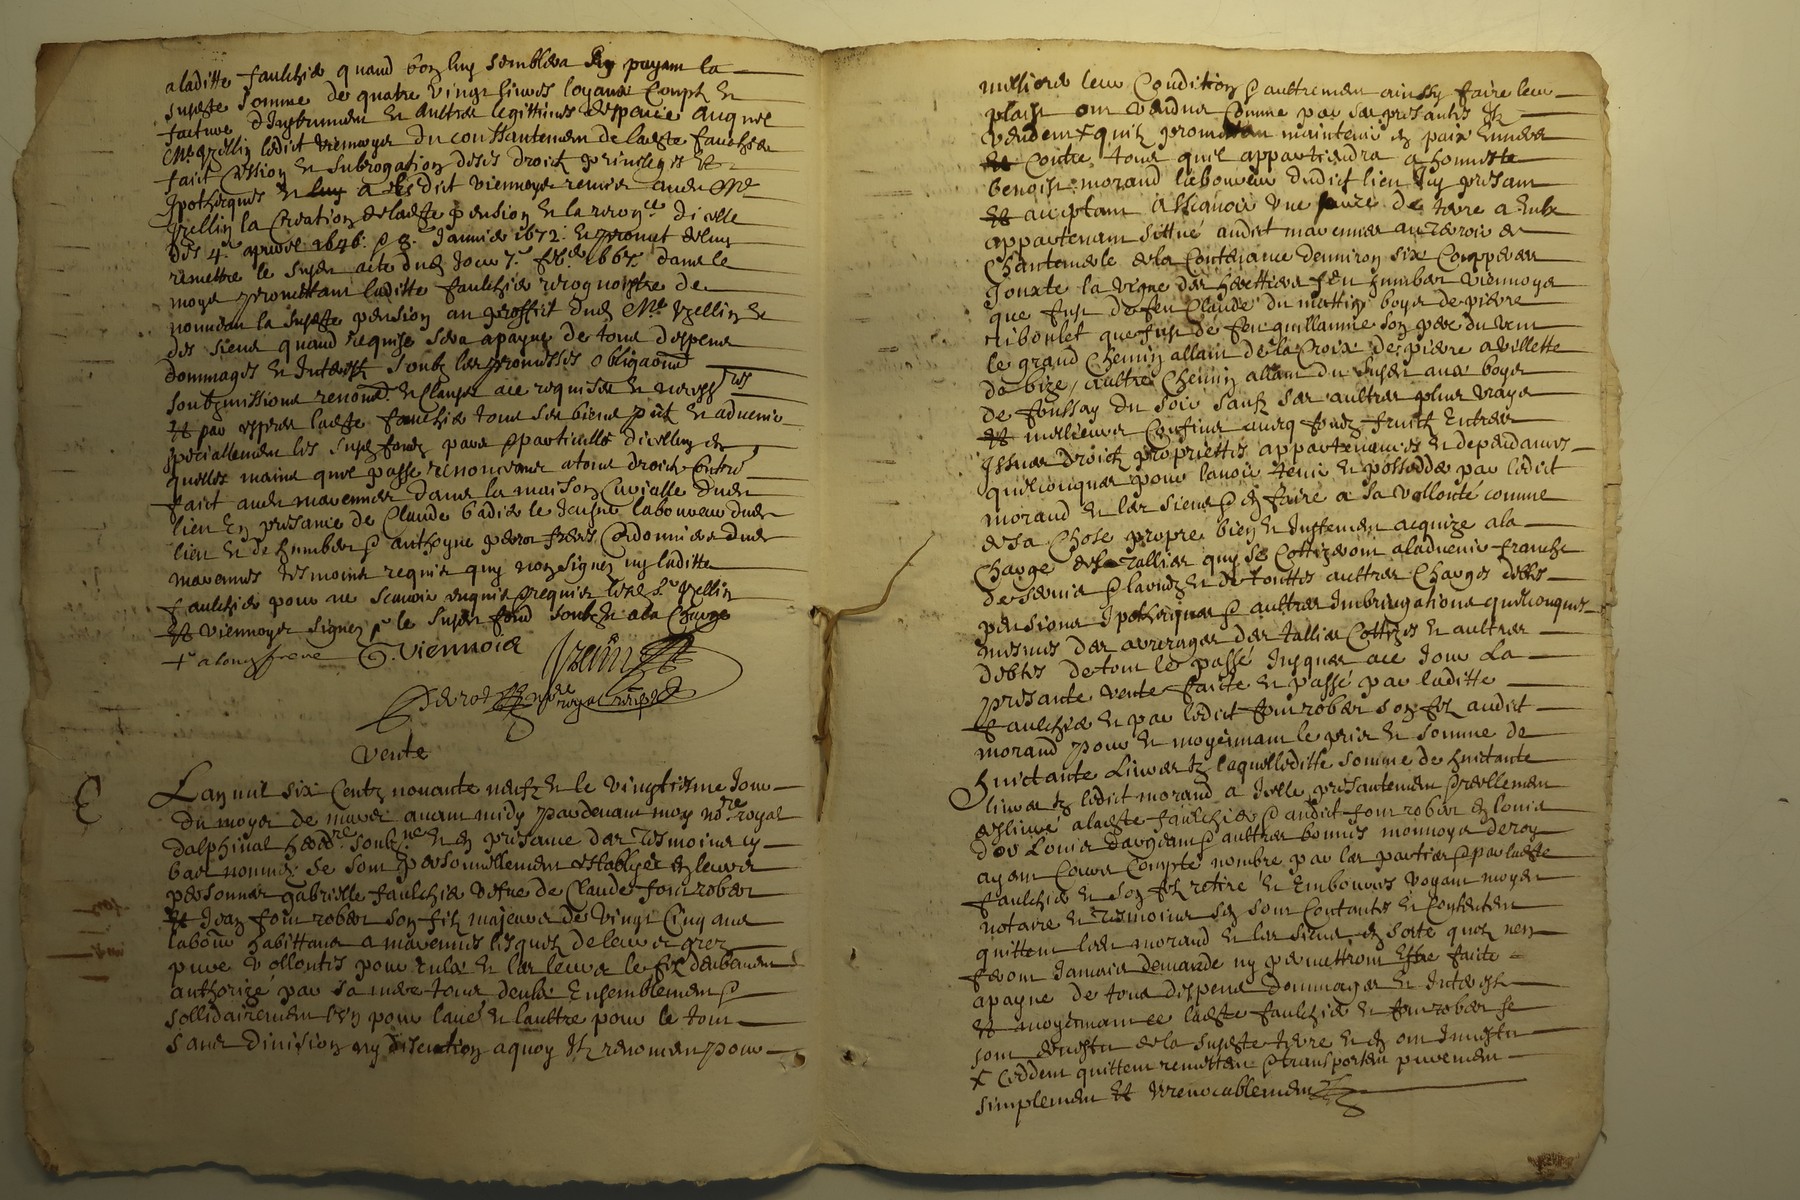 a laditte faulchier quand bon luy semblera en payant la
susditte somme de quatre vingt livres loyaux coupts et
facture d'instrument et aultres legittimes despance auquel
Me Vzellin ledict viennoyes du consentement de ladte faulchier
faict cession et subrogation desdts droict privileges et
ipotheques et a ledict viennoyes remis audt Me
Vzellin la creation de ladte pension et la recogce dicelle
des 4e apvril 1646 & 8e Janvier 1672 et promet de luy
remettre le susdt acte dudt jour 7e febr 1667 dans le
moys promettant laditte faulchier recognoistre de
nouveau la susdte pension au proffict dudt Me Vzellin et
des siens quand requise sera a payne de tous despens
dommages et interestz soubz les promesses obligaõns
soubzmissions renonõns et clauses a ce requises et necessres
et par expres ladte faulchier tous ses biens pñtz et advenir
speciallement les susdts fondz sans
quelles mains quil passe renonceant a tous droictz contre
faict audt marennes dans la maison curialle dudt
lieu en presance de Claude badier le jeusne laboureur dudt
lieu et de humbert & anthoyne perrot freres cordonniers dudt
marennes tesmoins requis quy non signez ny laditte
faulchier pour ne scavoir enquis & requis lesdts Sr Vzellin
et Viennoyes signez le susdt fond soubz et a la charge
G. Viennois Vzellin
royal
Vente
L'an mil six centz nonante neufz et le vingtiesme jour
du moys de mars avant midy pardevant moy nore royal
dalphinal hered.re soubz.ne et en presance des tesmoins cy
bas nommez se sont personnellement establyes en leurs
personnes gabrielle faulchier vefve de Claude fourrober
et Jean fourrober son filz majeur de vingt cinq ans
labour habittans a marennes lesquelz de leur gré
pure vollontés pour eulx et les leurs le filz deubement
authorizé par sa mere tous deulx ensemblement &
sollidairement l'un pour l'aue et l'aultre pour le tout
sans division ny discution a quoy ilz renoncent pour
meilleure leur condition & aultrement ainsy faire leur
plaist ont vendus comme par ses presantes ilz
vendent & quilz promettent maintenir en paix envers
et contre tous quil appartiendra a honneste
benoist morand laboureur dudict lieu icy present
et acceptant assçavoir une piece de terre a eulx
appartenant sittué audict marennes au terroir de
Chantemerle de la contenance denviron six couppees
jouxte la vigne des herettiers feu humbert viennoyes
que fust de feu Claude du mattin boyer de pierre
riboulet que fust de feu guillaume son pere du vent
le grand chemin allant de la croix de pierre a villette
de bize, aultre chemin allant du susdt aux boyer
de foussay du soir sauf ses aultres plus vrays
et meilleures confins avecq fondz fruictz entrees
issues droictz proprietés appartenances et dependances
quelconques pour l'avoir tenir et posseder par ledict
morand et les siens & en faire a sa vollonté comme
de sa chose propre bien et justement acquize a la
charge des tallies quy se cottizeront a ladvenir franche
de servis & laoudz et de touttes aultres charges debtes
pensions ipotheques & aultres imbringations quelconques
mesmes des arrerages des tallies cottizes et aultres
debtes de tout le passé jusques a ce jour la
presante vente faicte et passé par laditte
faulchier et par ledict fourrober son filz audict
morand pour et moyennant le prix et somme de
huictante livres tz laquelleditte somme de huictante
livres tz ledict morand a icelle presantement & reellement
deslivré a ladte faulchier & audict fourrober en louis
d'or louis d'argent & aultres bonnes monnoyes de roy
ayant cours compté nombré par les parties & par ladte
faulchier et son filz retiré et emboursé voyant moyen
notaire et tesmoins sen sont contantés et contentent
quittent ledt morand et les siens en sorte quilz nen
feront jamais demande ny permettront estre faicte
a payne de tous dispens dommages et interestz
et moyennant ce ladte faulchier et fourrober se
sont devestu de la susdte terre et en ont investu
ceddent quittent remettent & transportent purement
simplement et irrevocablement